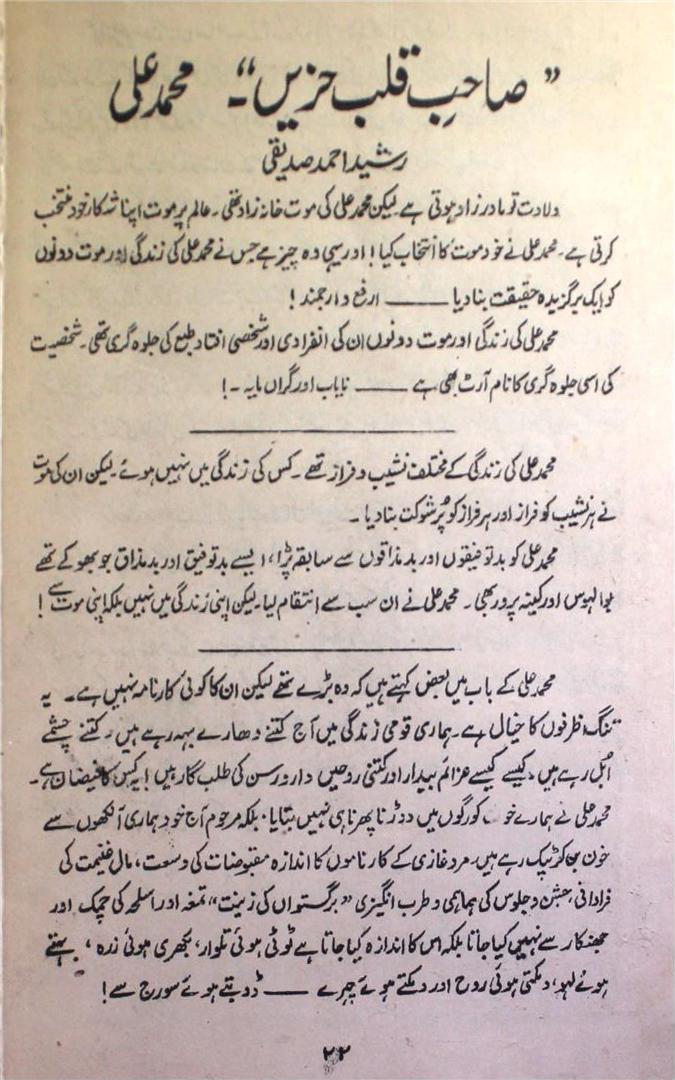 ”صاحبِ قلبِ حزیں“۔ محمد علی
رشید احمد صدیقی
ولادت تو مادر زاد ہوتی ہے لیکن محمد علی کی موت خانہ زاد تھی۔ عالم پر موت اپنا شہکار خود منتخب
کرتی ہے۔ محمد علی نے خود موت کا انتخاب کیا! اور یہی وہ چیز ہے جس نے محمد علی کی زندگی اور موت دونوں
کو ایک برگزیدہ حقیقت بنا دیا ——— ارفع و ارجمند!
محمد علی کی زندگی اور موت دونوں ان کی انفرادی اور شخصی افتاد طبع کی جلوہ گری تھی۔ شخصیت
کی اسی جلوہ گری کا نام آرٹ بھی ہے ——— نایاب اور گراں مایہ۔!
محمد علی کی زندگی کے مختلف نشیب و فراز تھے۔ کس کی زندگی میں نہیں ہوئے۔ لیکن ان کی موت
نے ہر نشیب کو فراز اور ہر فراز کو پُر شوکت بنا دیا۔
محمد علی کو بدتوفیقوں اور بدمذاقوں سے سابقہ پڑا، ایسے بدتوفیق اور بدمذاق جو بھوکے تھے
بوالہوس اور کینہ پرور بھی۔ محمد علی نے ان سب سے انتقام لیا۔ لیکن اپنی زندگی میں نہیں بلکہ اپنی موت سے!
محمد علی کے باب میں بعض کہتے ہیں کہ وہ بڑے تھے لیکن ان کا کوئی کارنامہ نہیں ہے۔ یہ
تنگ ظرفوں کا خیال ہے۔ ہماری قومی زندگی میں آج کتنے دھارے بہہ رہے ہیں۔ کتنے چشمے
اُبل رہے ہیں، کیسے کیسے عزائم بیدار اور کتنی روحیں دار و رسن کی طلب گار ہیں! یہ کس کا فیضان ہے۔
محمد علی نے ہمارے خون کو رگوں میں دوڑنا پھرنا ہی نہیں بتایا، بلکہ مرحوم آج خود ہماری آنکھوں سے
خون بن کر ٹپک رہے ہیں۔ مرد غازی کے کارناموں کا اندازہ مقبوضات کی وسعت، مال غنیمت کی
فراوانی، جشن و جلوس کی ہماہمی و طرب انگیزی ”برگستواں کی زینت“ تمغہ اور اسلحہ کی چمک اور
جھنکار سے نہیں کیا جاتا بلکہ اس کا اندازہ کیا جاتا ہے ٹوٹی ہوئی تلوار، بکھری ہوئی زرہ، بہتے
ہوئے لہو، دمکتی ہوئی روح اور دمکتے ہوئے چہرے ——— ڈوبتے ہوئے سورج سے!
۲۲